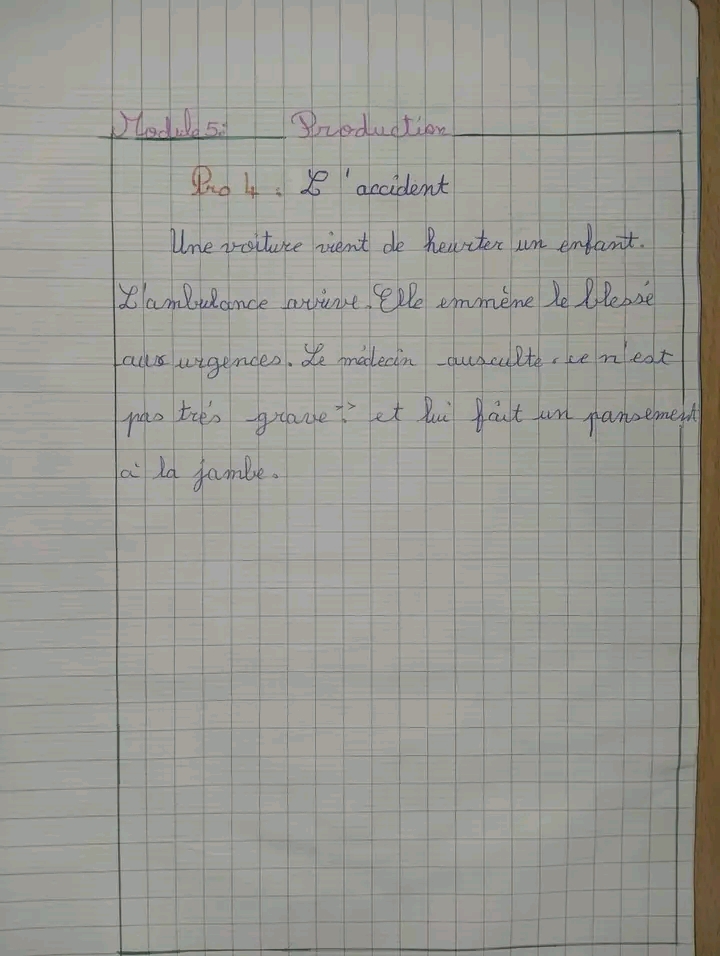 Module 5: Production
Pro 4 : L'accident
Une voiture vient de heurter un enfant.
L'ambulance arrive. Elle emmène le blessé
aux urgences. Le médecin ausculte. ce n'est
pas trés grave >>. et lui fait un pansement
à la jambe.